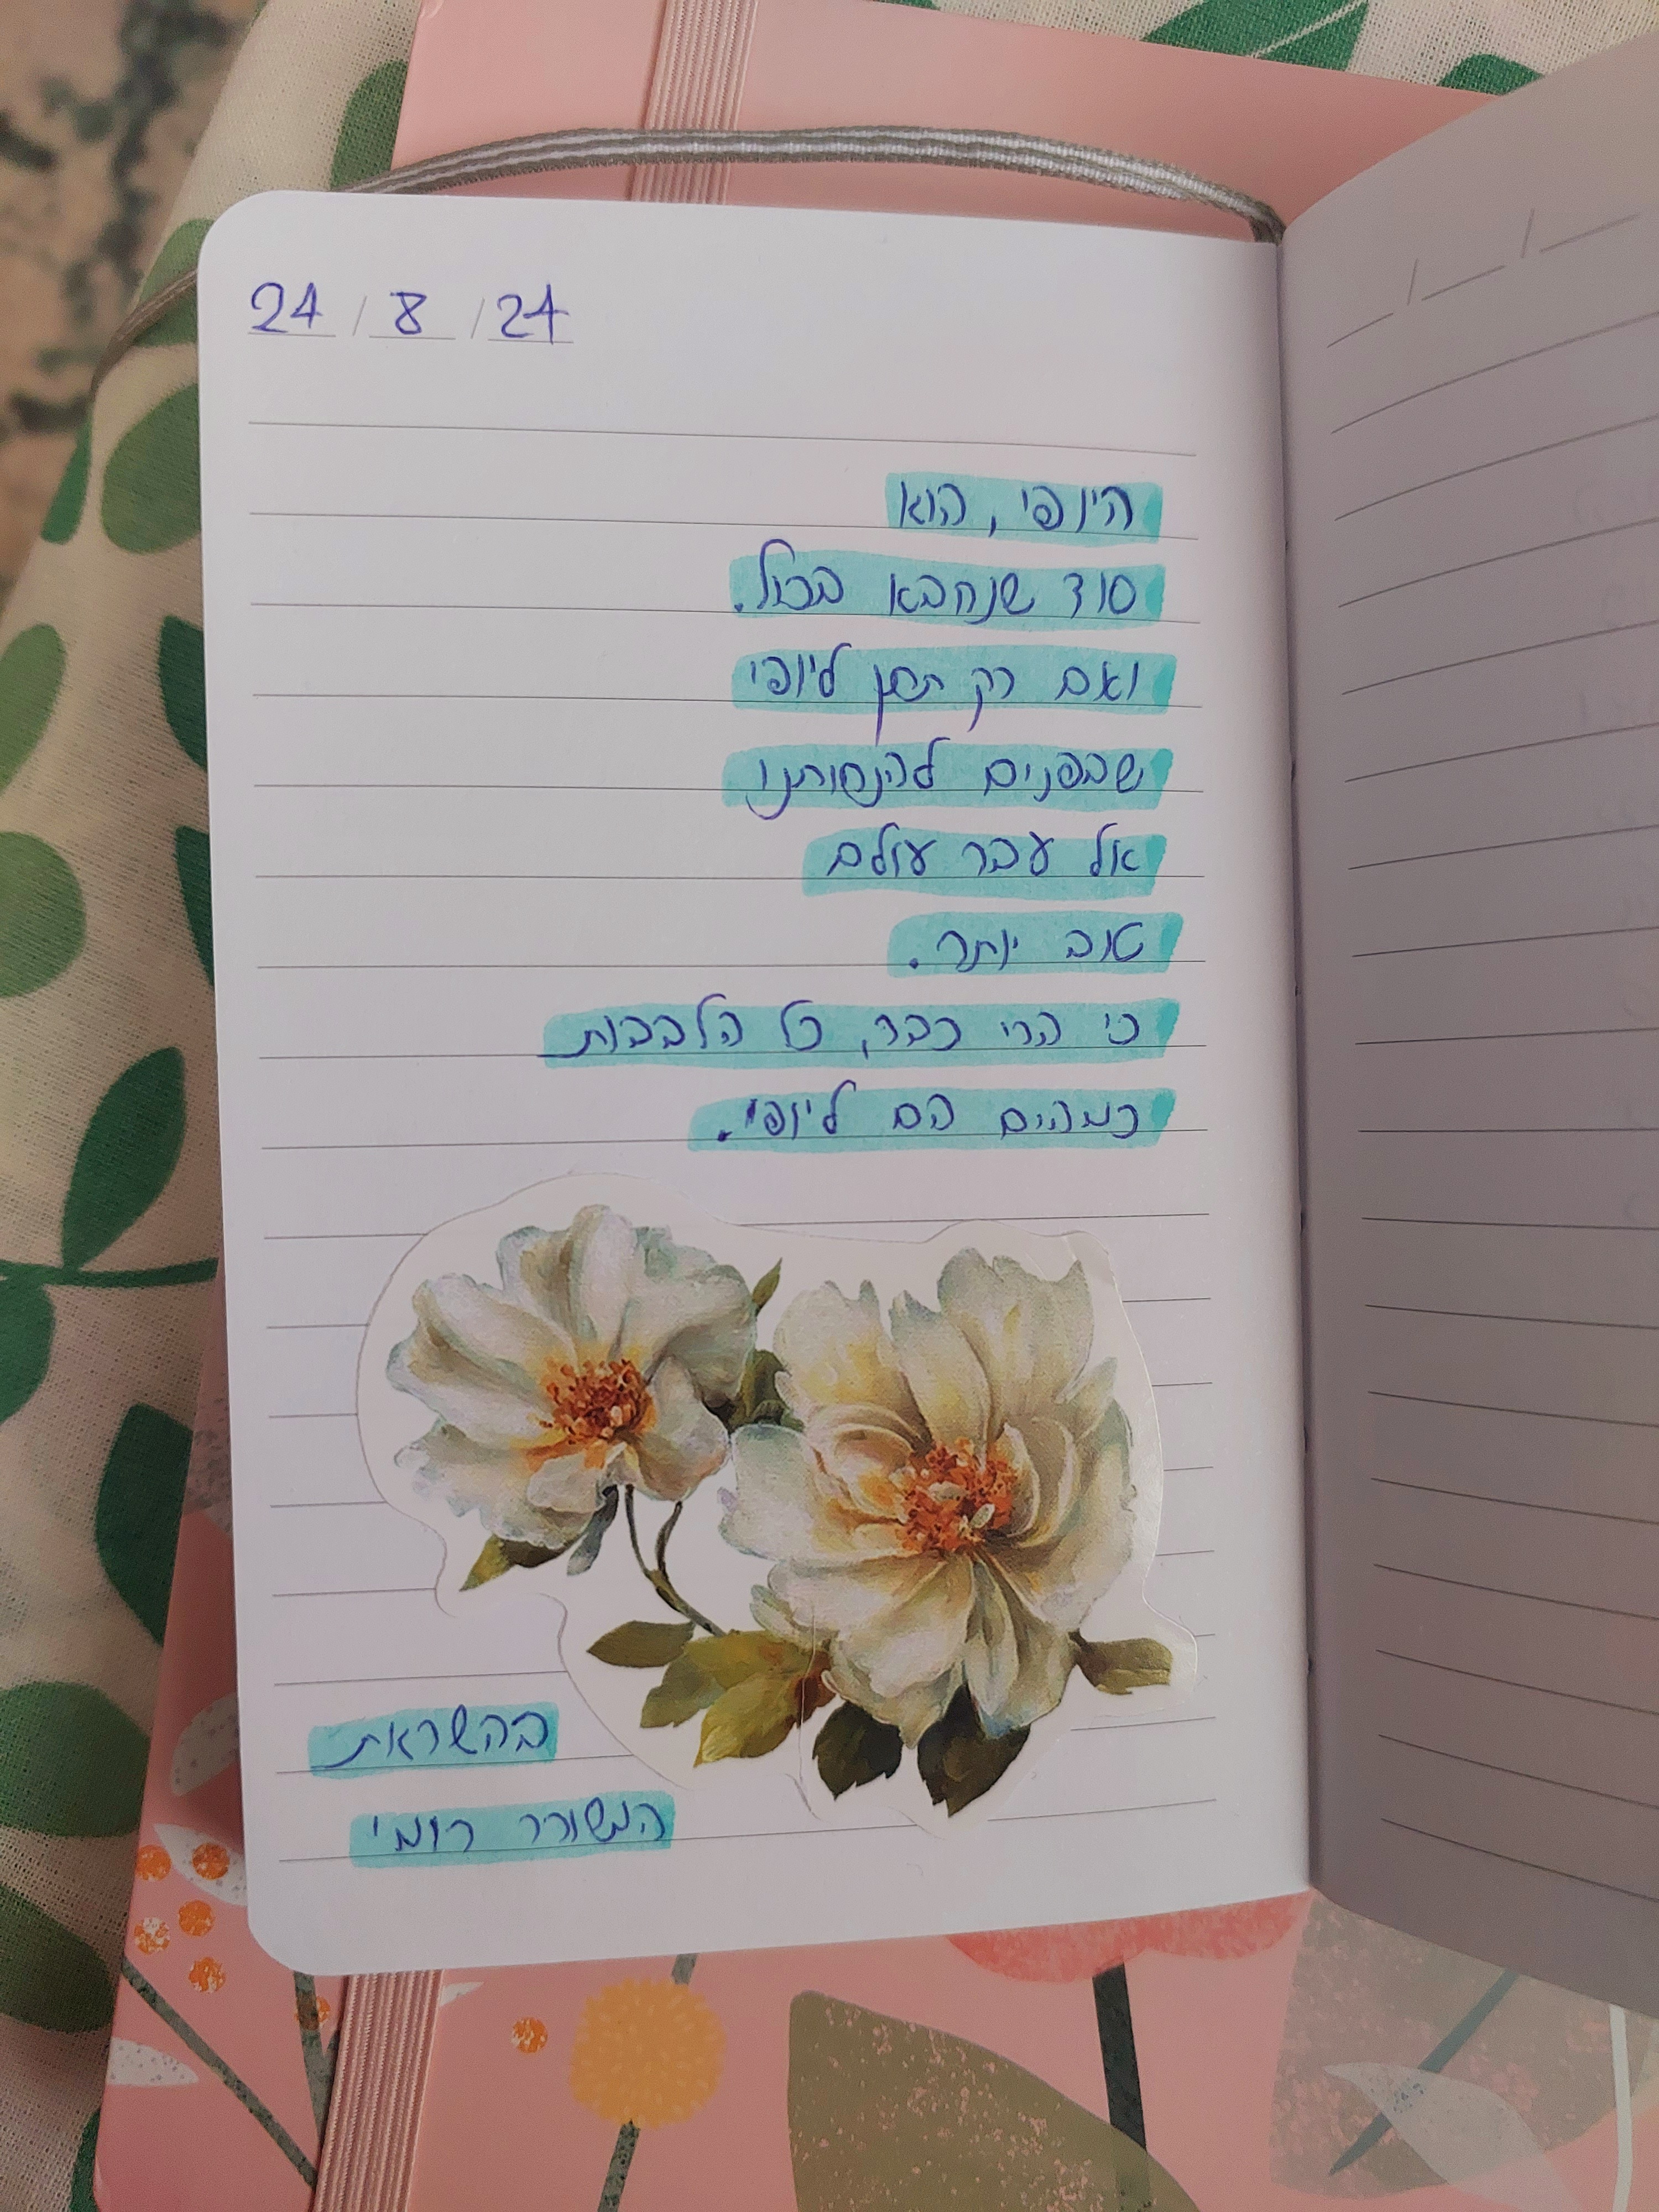 24/8/24
היופי, הוא
סוד שנחבא בכול.
ואם רק תתן ליופי
שבפנים להנחותנו
אל עבר עולם
טוב יותר.
כי הרי כבר, כל הלבבות
כמהים הם ליופי.
בהשראת
המשורר רומי